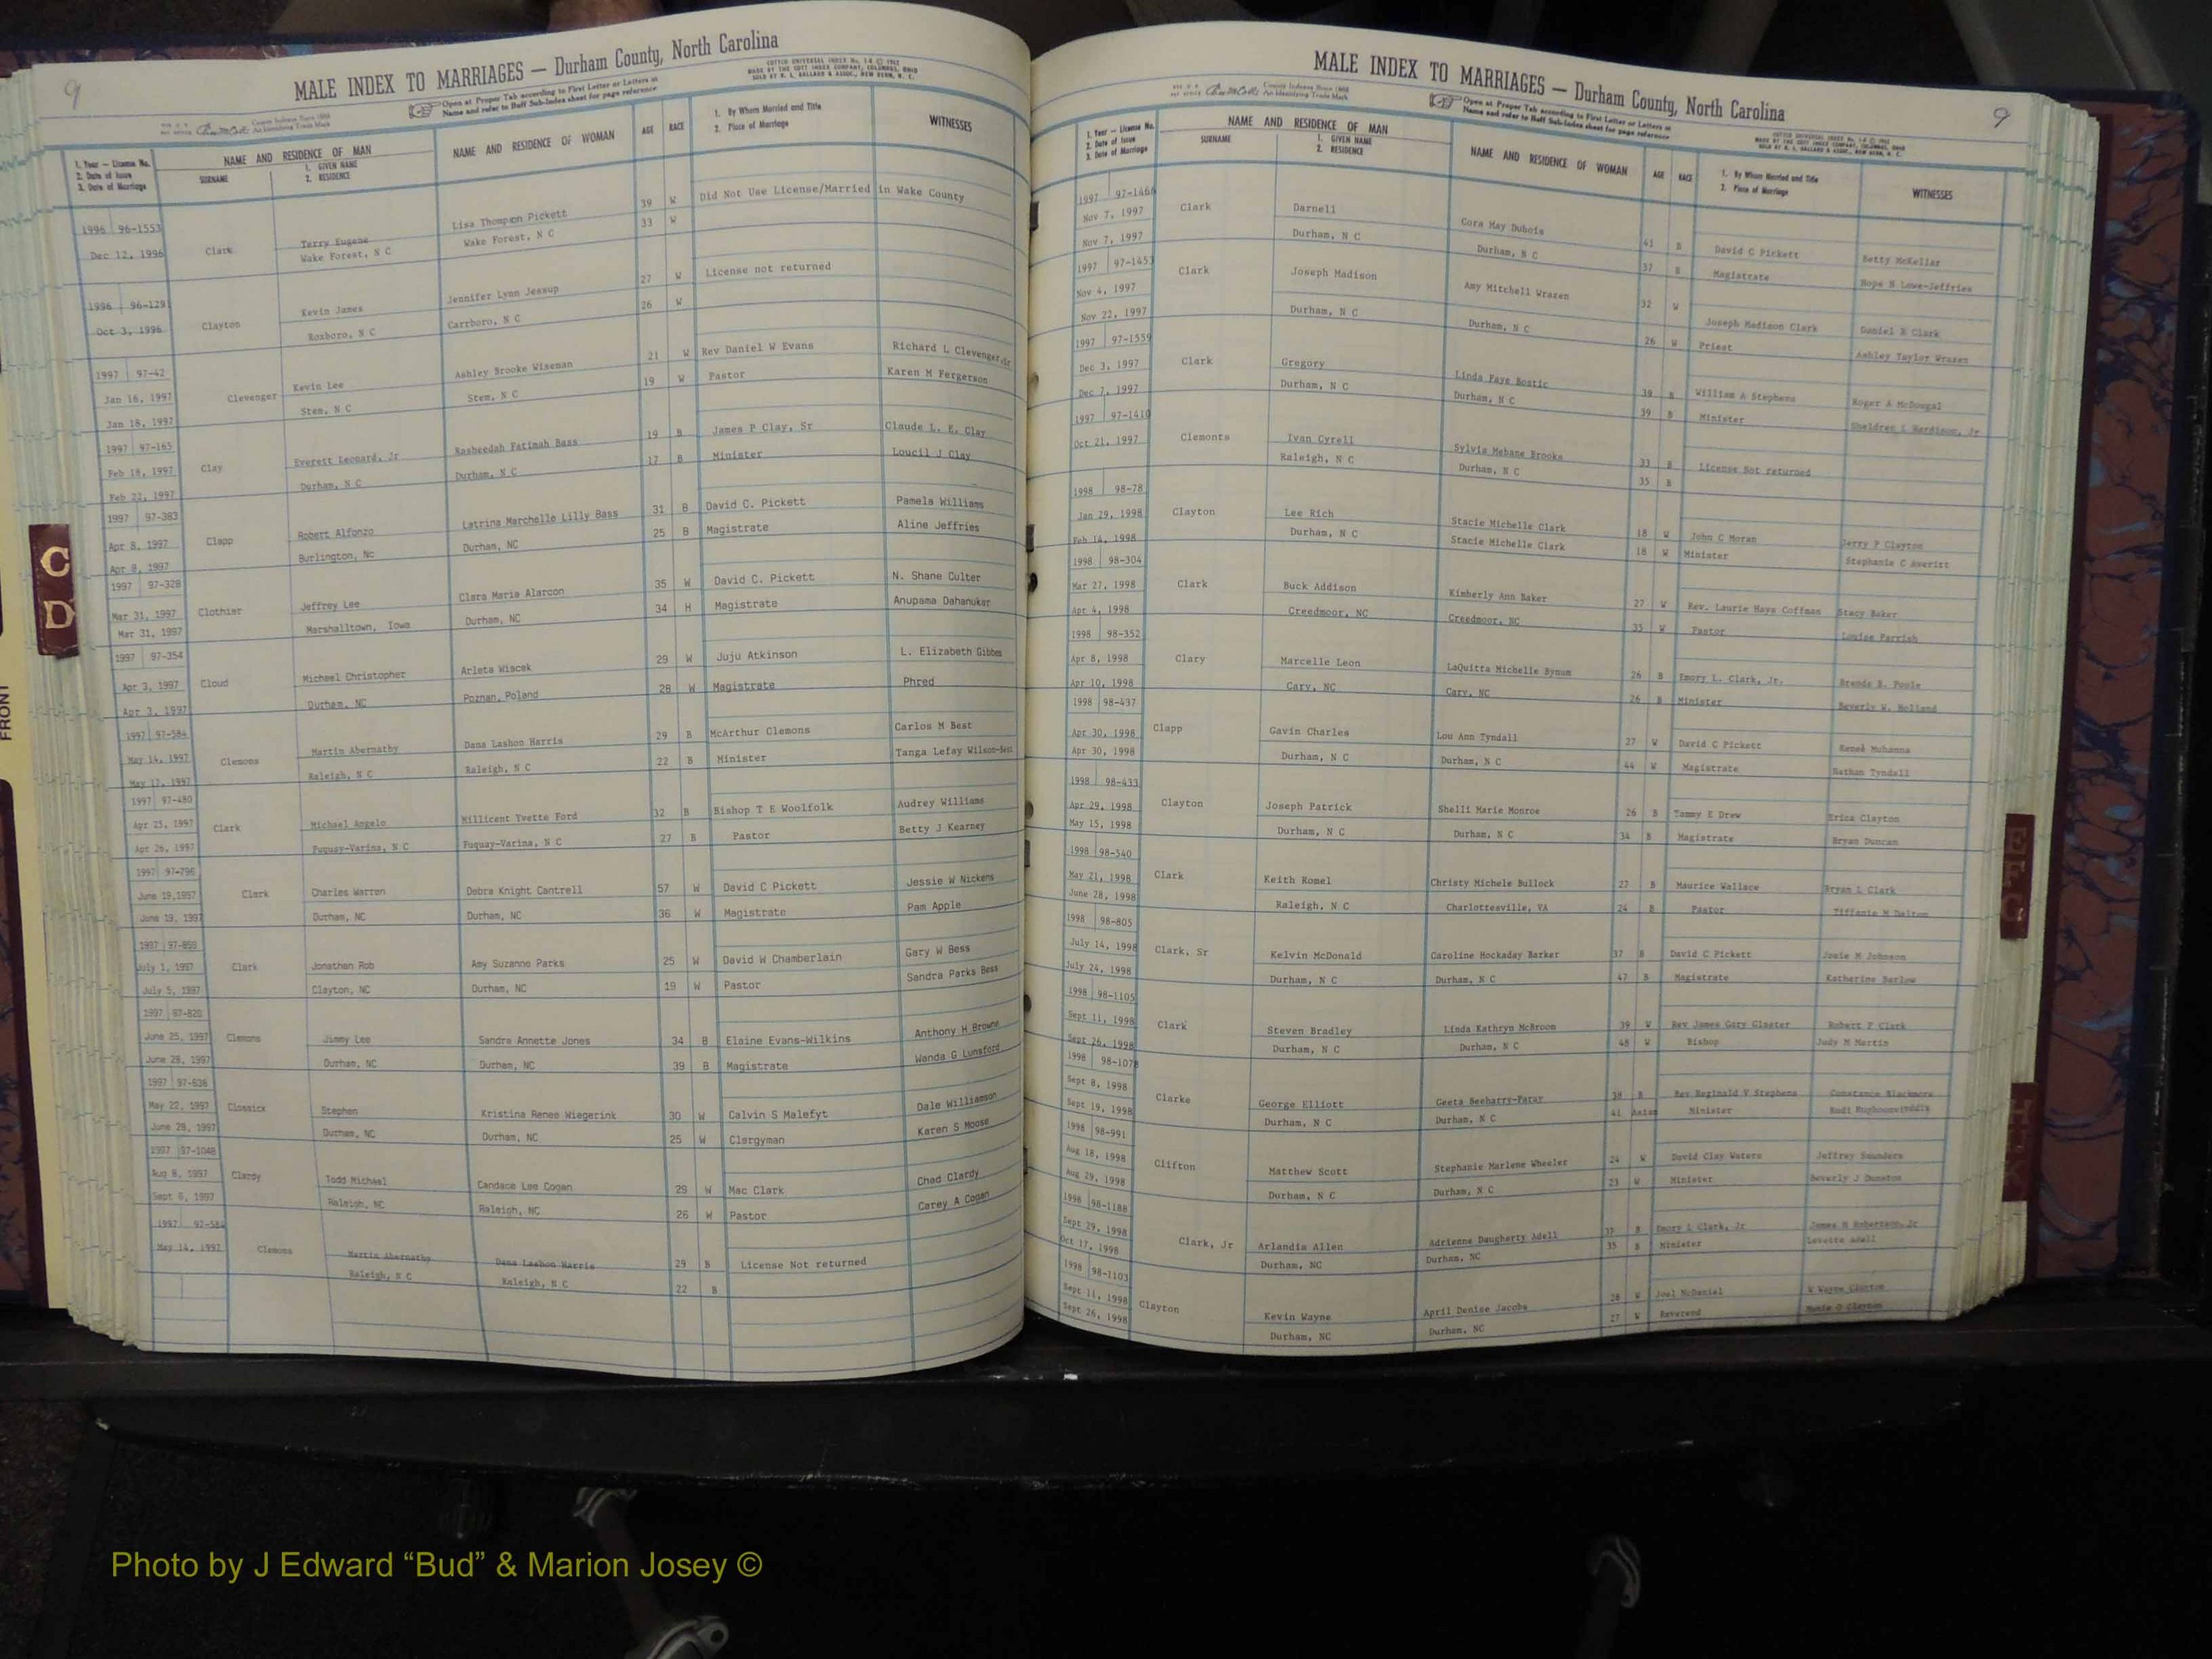 9
MALE INDEX TO MARRIAGES — Durham County, North Carolina
Open at Proper Tab according to First Letter or Letters of
Name and refer to Buff Sub-Index sheet for page reference
COTT'S UNIVERSAL INDEX No. 1-4 © 1962
MADE BY THE COTT INDEX COMPANY, COLUMBUS, OHIO
SOLD BY R. L. BALLARD & ASSOC., NEW BERN, N. C.
County Indexes Since 1888
An Identifying Trade Mark
1. Year — License No.
2. Date of Issue
3. Date of Marriage
NAME AND RESIDENCE OF MAN
SURNAME
1. GIVEN NAME
2. RESIDENCE
NAME AND RESIDENCE OF WOMAN
AGE
RACE
1. By Whom Married and Title
2. Place of Marriage
WITNESSES
1996 96-1553 Lisa Thompson Pickett 39 W Did Not Use License/Married in Wake County
Dec 12, 1996 Clark Terry Eugene Wake Forest, N C 33 W
Wake Forest, N C
1996 96-129 Kevin James Jennifer Lynn Jessup 27 W License not returned
Oct 3, 1996 Clayton Roxboro, N C Carrboro, N C 26 W
1997 97-42 Kevin Lee Ashley Brooke Wiseman 21 W Rev Daniel W Evans Richard L Clevenger, Jr
Jan 16, 1997 Clevenger Stem, N C Stem, N C 19 W Pastor Karen M Fergerson
Jan 18, 1997
1997 97-165 Everett Leonard, Jr Rasheedah Fatimah Bass 19 B James P Clay, Sr Claude L. E. Clay
Feb 18, 1997 Clay Durham, N C Durham, N C 17 B Minister Loucil J Clay
Feb 22, 1997
1997 97-383 Robert Alfonzo Latrina Marchelle Lilly Bass 31 B David C. Pickett Pamela Williams
Apr 8, 1997 Clapp Burlington, Nc Durham, NC 25 B Magistrate Aline Jeffries
Apr 8, 1997
1997 97-328 Jeffrey Lee Clara Maria Alarcon 35 W David C. Pickett N. Shane Culter
Mar 31, 1997 Clothier Marshalltown, Iowa Durham, NC 34 H Magistrate Anupama Dahanukar
Mar 31, 1997
1997 97-354 Michael Christopher Arleta Wiacek 29 W Juju Atkinson L. Elizabeth Gibbes
Apr 3, 1997 Cloud Durham, NC Poznan, Poland 28 W Magistrate Phred
Apr 3, 1997
1997 97-584 Martin Abernathy Dana Lashon Harris 29 B McArthur Clemons Carlos M Best
May 14, 1997 Clemons Raleigh, N C Raleigh, N C 22 B Minister Tanga Lefay Wilson-Best
May 17, 1997
1997 97-480 Michael Angelo Millicent Yvette Ford 32 B Bishop T E Woolfolk Audrey Williams
Apr 25, 1997 Clark Fuquay-Varina, N C Fuquay-Varina, N C 27 B Pastor Betty J Kearney
Apr 26, 1997
1997 97-796
June 19,1997 Clark Charles Warren Debra Knight Cantrell 57 W David C Pickett Jessie W Nickens
June 19, 1997 Durham, NC Durham, NC 36 W Magistrate Pam Apple
1997 97-859
July 1, 1997 Clark Jonathan Rob Amy Suzanne Parks 25 W David W Chamberlain Gary W Bess
July 5, 1997 Clayton, NC Durham, NC 19 W Pastor Sandra Parks Bess
1997 97-820
June 25, 1997 Clemons Jimmy Lee Sandra Annette Jones 34 B Elaine Evans-Wilkins Anthony H Browne
June 28, 1997 Durham, NC Durham, NC 39 B Magistrate Wanda G Lunsford
1997 97-636
May 22, 1997 Clossick Stephen Kristina Renee Wiegerink 30 W Calvin S Malefyt Dale Williamson
June 28, 1997 Durham, NC Durham, NC 25 W Clergyman Karen S Moose
1997 97-1048
Aug 8, 1997 Clardy Todd Michael Candace Lee Cogan 29 W Mac Clark Chad Clardy
Sept 6, 1997 Raleigh, NC Raleigh, NC 26 W Pastor Carey A Cogan
1997 97-584
May 14, 1997 Clemons Martin Abernathy Dana Lashon Harris 29 B License Not returned
Raleigh, N C Raleigh, N C 22 B
9
MALE INDEX TO MARRIAGES — Durham County, North Carolina
Open at Proper Tab according to First Letter or Letters of
Name and refer to Buff Sub-Index sheet for page reference
COTT'S UNIVERSAL INDEX No. 1-4 © 1962
MADE BY THE COTT INDEX COMPANY, COLUMBUS, OHIO
SOLD BY R. L. BALLARD & ASSOC., NEW BERN, N. C.
County Indexes Since 1888
An Identifying Trade Mark
1. Year — License No.
2. Date of Issue
3. Date of Marriage
NAME AND RESIDENCE OF MAN
SURNAME
1. GIVEN NAME
2. RESIDENCE
NAME AND RESIDENCE OF WOMAN
AGE
RACE
1. By Whom Married and Title
2. Place of Marriage
WITNESSES
1997 97-1466
Nov 7, 1997 Clark Darnell Cora May Dubois 41 B David C Pickett Betty McKellar
Nov 7, 1997 Durham, N C Durham, N C 37 B Magistrate Hope N Lowe-Jeffries
1997 97-1453
Nov 4, 1997 Clark Joseph Madison Amy Mitchell Wrazen 32 W Joseph Madison Clark Daniel R Clark
Nov 22, 1997 Durham, N C Durham, N C 26 W Priest Ashley Taylor Wrazen
1997 97-1559
Dec 3, 1997 Clark Gregory Linda Faye Bostic 39 B William A Stephens Roger A McDougal
Dec 7, 1997 Durham, N C Durham, N C 39 B Minister Sheldren L Hardison, Jr
1997 97-1410
Oct 21, 1997 Clemonts Ivan Cyrell Sylvia Mebane Brooks 33 B License Not returned
Raleigh, N C Durham, N C 35 B
1998 98-78
Jan 29, 1998 Clayton Lee Rich Stacie Michelle Clark 18 W John C Moran Jerry P Clayton
Feb 14, 1998 Durham, N C Stacie Michelle Clark 18 W Minister Stephanie C Averitt
1998 98-304
Mar 27, 1998 Clark Buck Addison Kimberly Ann Baker 27 W Rev. Laurie Hays Coffman Stacy Baker
Apr 4, 1998 Creedmoor, NC Creedmoor, NC 35 W Pastor Louise Parrish
1998 98-352
Apr 8, 1998 Clary Marcelle Leon LaQuitta Michelle Bynum 26 B Emory L. Clark, Jr. Brenda B. Poole
Apr 10, 1998 Cary, NC Cary, NC 26 B Minister Beverly W. Holland
1998 98-437
Apr 30, 1998 Clapp Gavin Charles Lou Ann Tyndall 27 W David C Pickett Reneé Muhanna
Apr 30, 1998 Durham, N C Durham, N C 44 W Magistrate Nathan Tyndall
1998 98-433
Apr 29, 1998 Clayton Joseph Patrick Shelli Marie Monroe 26 B Tammy E Drew Erica Clayton
May 15, 1998 Durham, N C Durham, N C 34 B Magistrate Bryan Duncan
1998 98-540
May 21, 1998 Clark Keith Romel Christy Michele Bullock 27 B Maurice Wallace Bryan L Clark
June 28, 1998 Raleigh, N C Charlottesville, VA 24 B Pastor Tiffanie M Dalton
1998 98-805
July 14, 1998 Clark, Sr Kelvin McDonald Caroline Hockaday Barker 37 B David C Pickett Josie M Johnson
July 24, 1998 Durham, N C Durham, N C 47 B Magistrate Katherine Barlow
1998 98-1105
Sept 11, 1998 Clark Steven Bradley Linda Kathryn McBroom 39 W Rev James Gary Gloster Robert P Clark
Sept 26, 1998 Durham, N C Durham, N C 48 W Bishop Judy M Martin
1998 98-1078
Sept 8, 1998 Clarke George Elliott Geeta Beeharry-Paray 38 B Rev Reginald V Stephens Constance Blackmore
Sept 19, 1998 Durham, N C Durham, N C 41 Asian Minister
1998 98-991
Aug 18, 1998 Clifton Matthew Scott Stephanie Marlene Wheeler 24 W David Clay Waters Jeffrey Saunders
Aug 29, 1998 Durham, N C Durham, N C 23 W Minister Beverly J Dunston
1998 98-1188
Sept 29, 1998 Clark, Jr Arlandia Allen Adrienne Daugherty Adell 37 B Emory L Clark, Jr James H Robertson, Jr
Oct 17, 1998 Durham, NC Durham, NC 35 B Minister Lovette Adell
1998 98-1103
Sept 11, 1998 Clayton Kevin Wayne April Denise Jacobs 28 W Joel McDaniel W Wayne Clayton
Sept 26, 1998 Durham, NC Durham, NC 27 W Reverend O Clayton
C
D
FRONT
Photo by J Edward “Bud” & Marion Josey ©